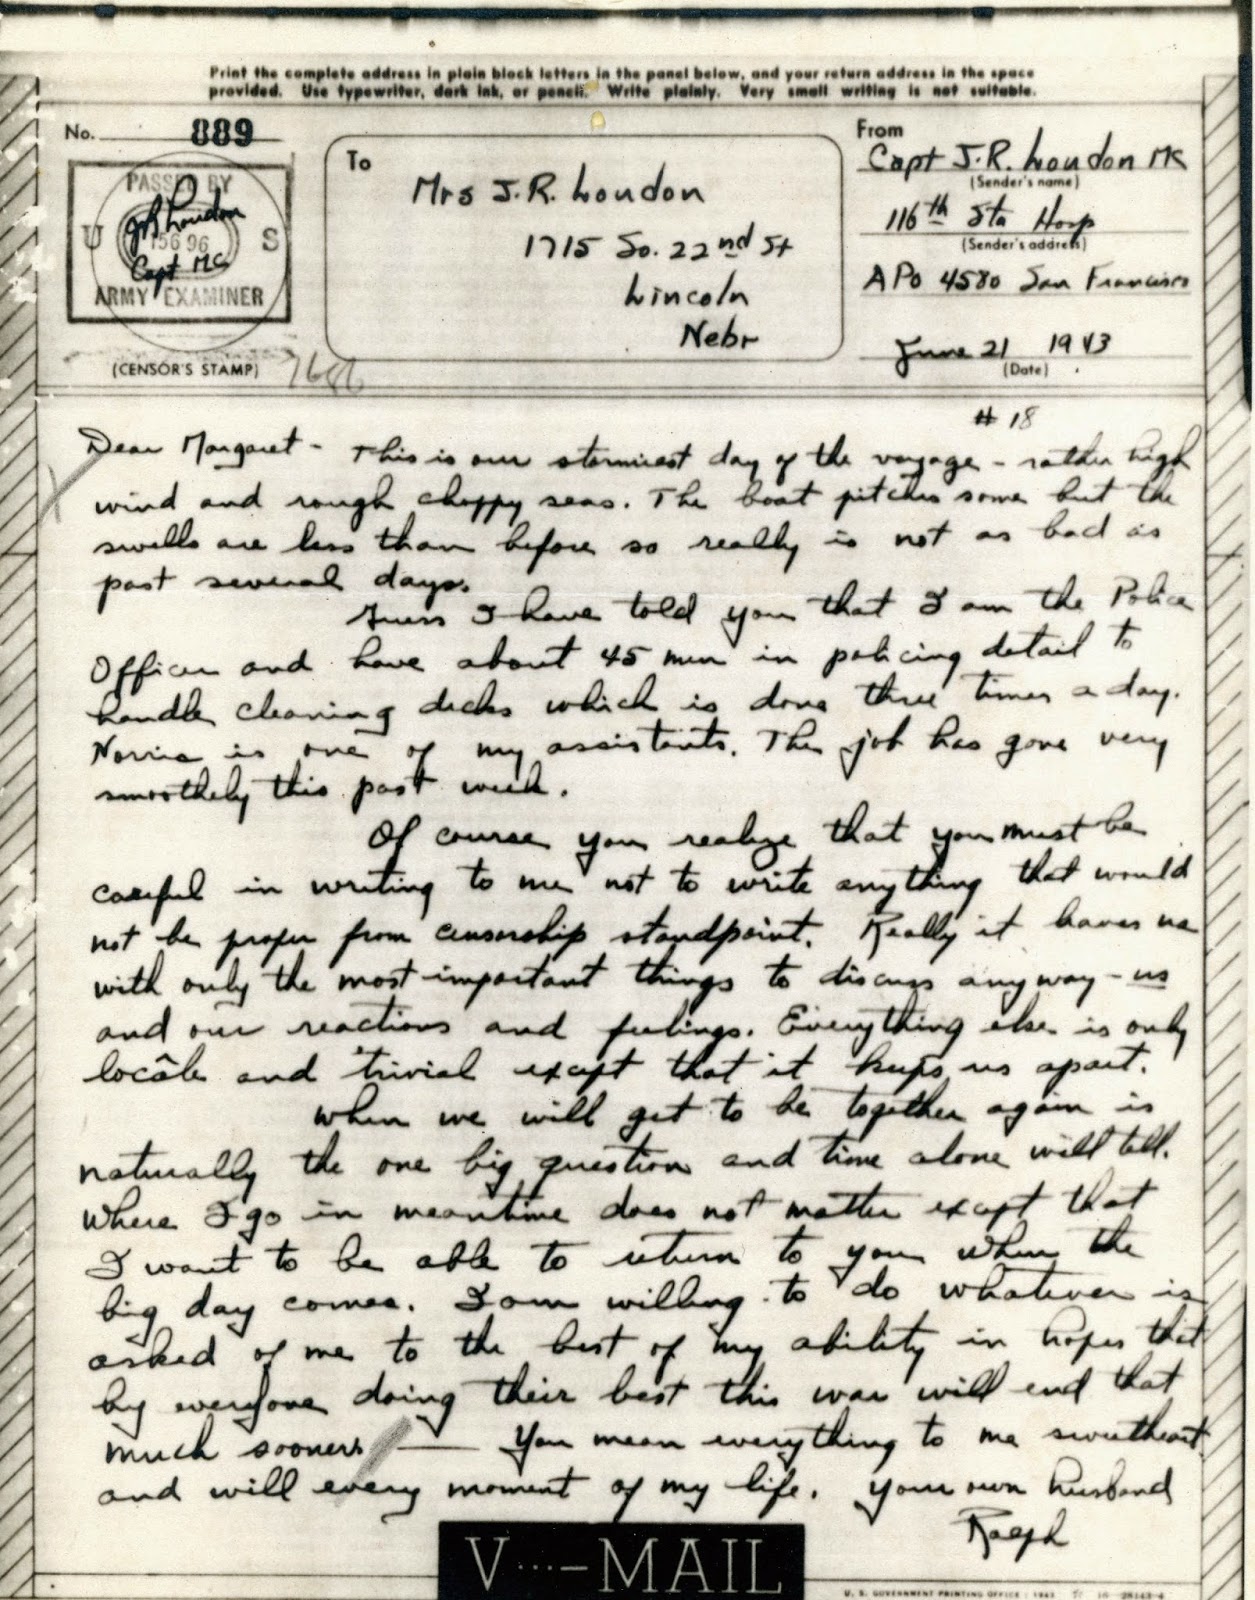 Print the complete address in plain block letters in the panel below, and your return address in the space
provided. Use typewriter, dark ink, or pencil. Write plainly. Very small writing is not suitable.
No. 889
PASSED BY
U S
JR Loudon
15696
Capt MC
ARMY EXAMINER
(CENSOR'S STAMP)
To
Mrs J.R. Loudon
1715 So. 22nd St
Lincoln
Nebr
From
Capt J.R. Loudon MC
(Sender's name)
116th Sta Hosp
(Sender's address)
APO 4580 San Francisco
June 21 1943
(Date)
# 18
Dear Margaret - This is our stormiest day of the voyage - rather high
wind and rough choppy seas. The boat pitches some but the
swells are less than before so really is not as bad as
past several days.
Guess I have told you that I am the Police
Officer and have about 45 men in policing detail to
handle cleaning decks which is done three times a day.
Norris is one of my assistants. The job has gone very
smoothely this past week.
Of course you realize that you must be
careful in writing to me not to write anything that would
not be proper from censorship standpoint. Really it leaves us
with only the most important things to discuss anyway - us
and our reactions and feelings. Everything else is only
locale and trivial except that it keeps us apart.
When we will get to be together again is
naturally the one big question and time alone will tell.
Where I go in meantime does not matter except that
I want to be able to return to you when the
big day comes. I am willing to do whatever is
asked of me to the best of my ability in hopes that
by everyone doing their best this war will end that
much sooner. — You mean everything to me sweetheart
and will every moment of my life. Your own husband
Ralph
V···–MAIL
U. S. GOVERNMENT PRINTING OFFICE : 1943